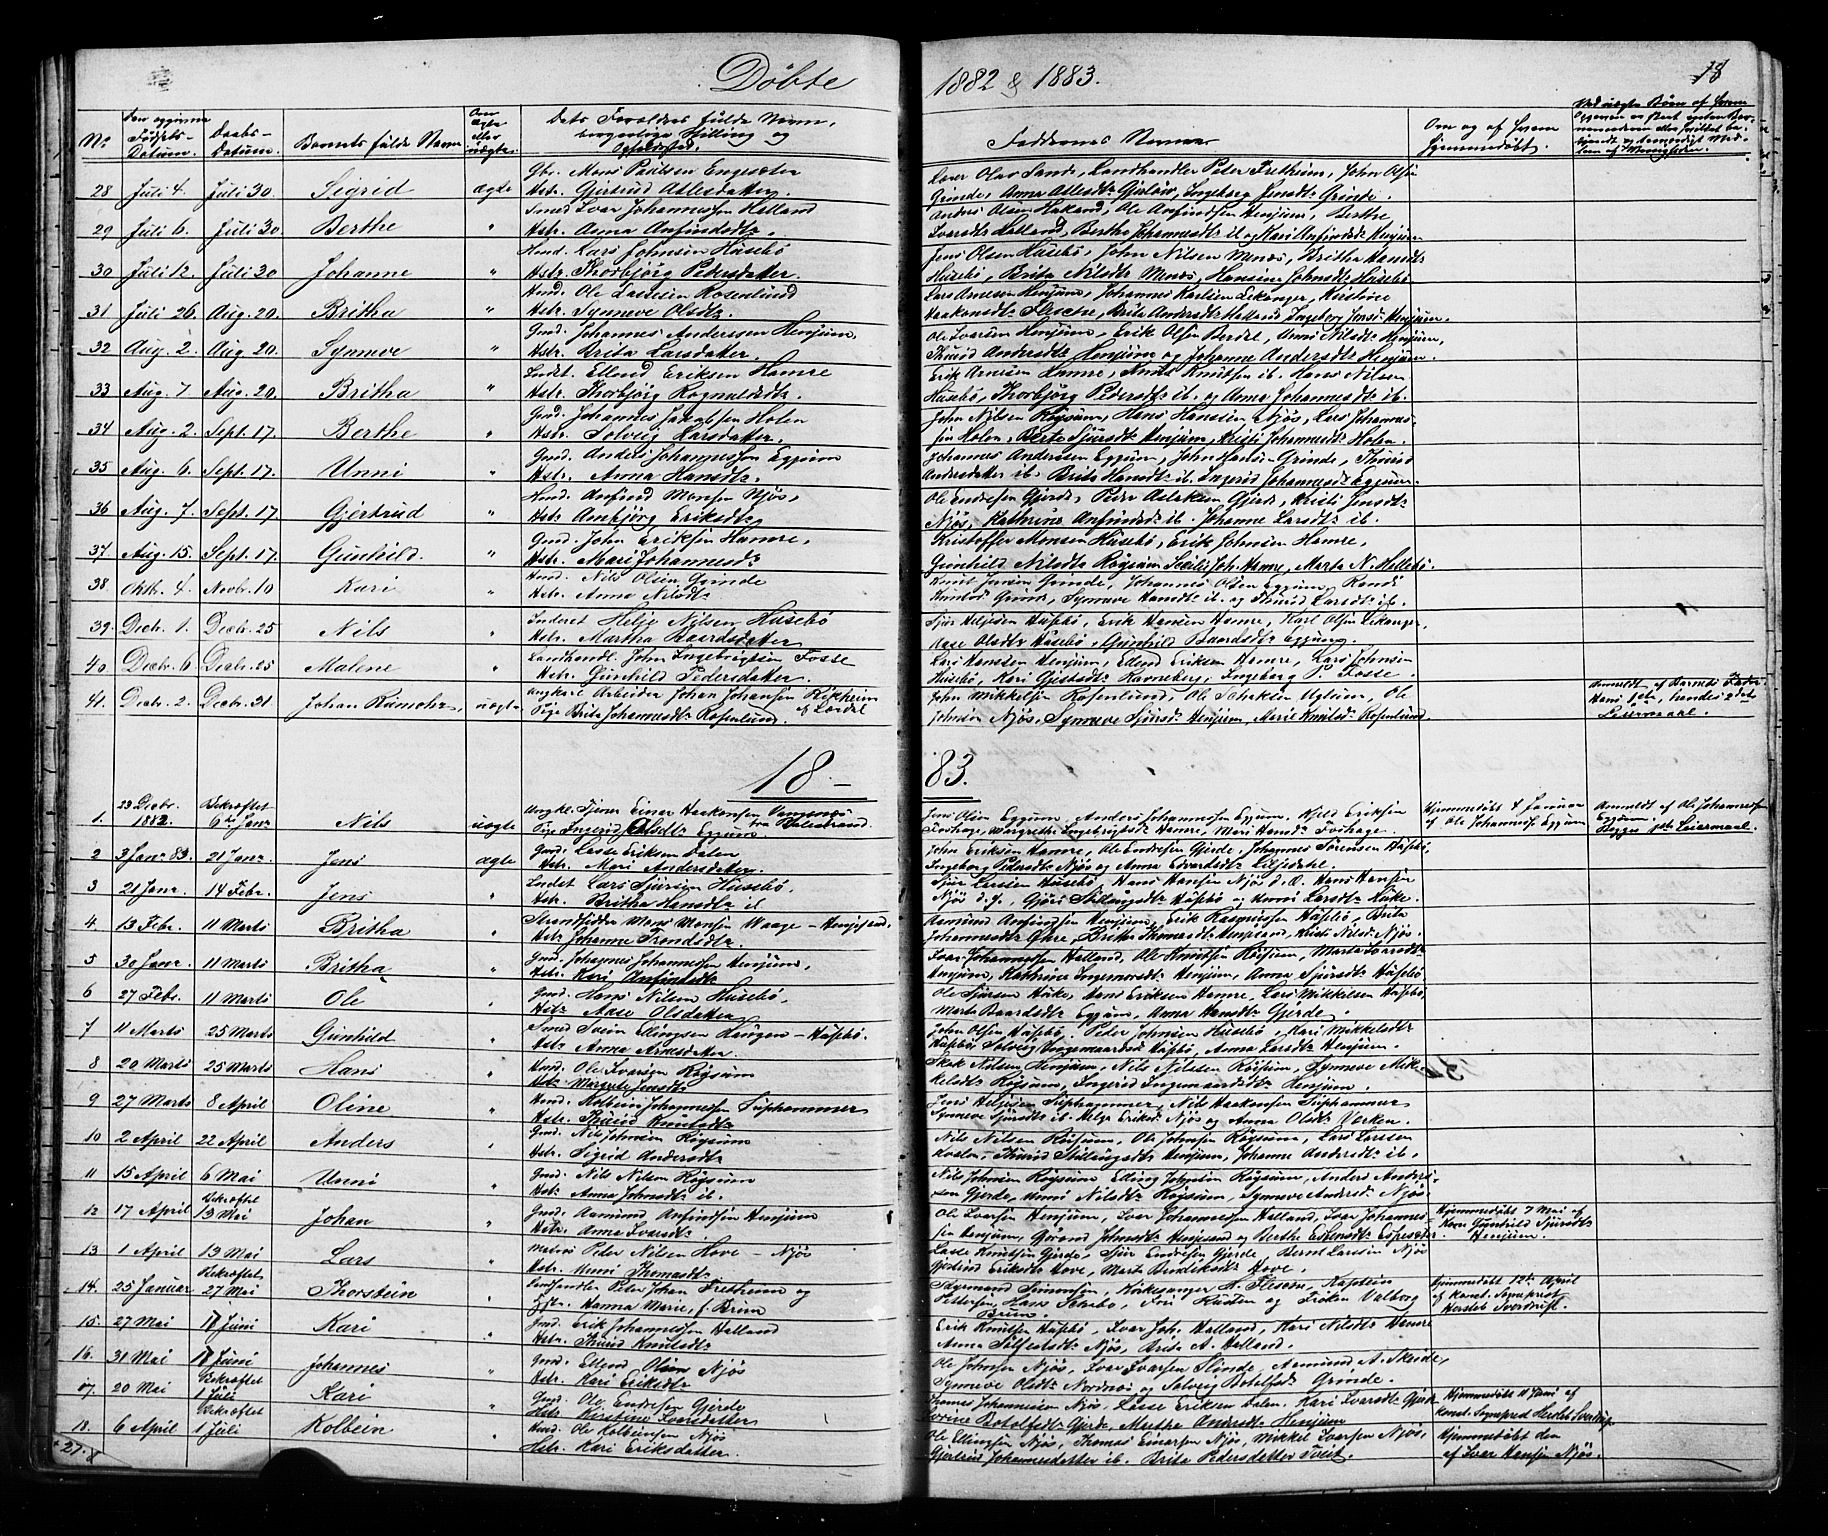 Döbte
1882 & 1883.
18
No
Den opgivne Födsels-Datum.
Daabs-Datum.
Barnets fulde Navn
Om ægte eller uægte.
Dets Forældres fulde Navn, borgerlige Stilling og Opholdsted.
Faddernes Navne
Om og af hvem hjemmedöbt.
28 Juli 4. Juli 30. Sigrid ægte Gbr. Mons Paulsen Engesæter
Hstr. Gjertrud Atlesdatter.
Lærer Olav Sande, Landhandler Peter Fretheim, John Olsen
Grinde, Anna Atlesdtr Gjerlöw, Ingeborg Jensdtr Grinde.
29 Juli 6. Juli 30. Berthe " Smed Ivar Johannessen Halland
Hstr. Anna Anfindsdtr.
Anders Olsen Hakand, Ole Anfindsen Henjum, Berthe
Ivarsdtr Halland, Berthe Johannesdtr ib. og Kari Anfindsdtr Henjum
30 Juli 12. Juli 30 Johanne " Hmd. Lars Johnsen Husebö
Hstr. Thorbjörg Pedersdatter.
Jens Olsen Husebö, John Nilsen Menæs, Britha Hansdtr
Husebö, Brita Nilsdtr Menæs, Hansine Johnsdtr Husebö
31 Juli 26. Aug. 20. Britha " Hmd. Ole Lassesen Rosenlund
Hstr. Synneve Olsdtr.
Lars Arnesen Henjum, Johannes Karlsen Leikanger, Kirstine
Haakonsdtr Flesche, Brita Andersdtr Halland, Ingeborg Jonsdtr Henjum.
32 Aug. 2. Aug 20. Synneve " Gmd. Johannes Andersen Henjum,
Hstr. Brita Larsdatter.
Ole Ivarsen Henjum, Erik Olsen Berdal, Anna Nilsdtr Henjum,
Thurid Andersdtr Henjum og Johanne Andersdtr Henjum.
33 Aug. 7 Aug. 20 Britha " Indst. Ellend Eriksen Hamre
Hstr. Thorbjörg Rognaldsdtr.
Erik Arnesen Hamre, Knut Knutsen ib. Hans Nilsen
Husebö, Thorbjörg Pedersdtr ib. og Anna Johannesdtr ib.
34 Aug. 2. Sept. 17. Berthe " Gmd. Johannes Jakobsen Holen
Hstr. Solveig Larsdatter.
John Nilsen Röysum, Hans Hansen Njös, Lars Johannes-
sen Holen, Berte Sjursdtr Henjum, Kristi Johannesdtr Holen.
35 Aug. 6. Sept. 17. Unni " Gmd. Anders Johannessen Eggum
Hstr. Anna Hansdtr.
Johannes Andersen Eggum, John Hansen Grinde, Thurid
Andersdatter ib. Brita Hansdtr ib. Ingerid Johannesdtr Eggum.
36 Aug. 7. Sept. 17 Gjertrud " Hmd. Anfind Monsen Njös,
Hstr. Ambjörg Eriksdtr.
Ole Endresen Gjerde, Peder Aslaksen Gjerde, Kristi Jensdtr
Njös, Kathrine Anfindsdtr ib. Johanne Larsdtr ib.
37 Aug. 15. Sept. 17 Gunhild. " Gmd. John Eriksen Hamre,
Hstr. Mari Johannesdtr
Kristoffer Monsen Husebö, Erik Johnsen Hamre,
Gunhild Nilsdtr Röysum, Secilie Joh. Hamre, Marta N. Husebö.
38 Oktbr. 4. Novbr. 10 Kari " Hmd. Nils Olsen Grinde
Hstr. Anna Nilsdtr
Knut Jensen Grinde, Johannes Olsen Eggum, Randi
Knutsdtr Grinde, Synneve Hansdtr ib. og Thurid Larsdtr ib.
39. Decbr. 1. Decbr. 25 Nils " Inderst Helje Nilsen Husebö
Hstr. Martha Baardsdatter
Sjur Heljesen Husebö, Erik Hansen Hamre, Karl Olsen Leikanger,
Aase Olsdtr Husebö, Gunhild Baardsdtr Eggum.
40 Decbr. 6 Decbr. 25 Malene " Landhandl. John Ingebrigtsen Fosse
Hstr. Gunhild Pedersdatter.
Lars Hanssen Henjum, Ellend Eriksen Hamre, Lars Johnsen
Husebö, Kari Gjestsdtr Ravneberg, Ingeborg P. Fosse.
41. Decbr. 2. Decbr. 31 Johan uægte Ungkarl Arbeider Johan Johansen
af Lærdal
Pige Brita Johannesdtr Rosenlund.
John Mikkelsen Rosenlund, Ole
Johnsen Njös, Synneve Sjursdtr Henjum, Marie Knutsdtr Rosenlund
Anmeldt af Barnets Fader
Hans 1ste, hendes 2det
Leiermaal.
18 – 83.
1. 23 Decbr. 1882. Bekræftet 6te Janr Nils uægte Ungkl. Tjener Einar Haakonsen Vangsnes
fra Balestrand.
Pige Ingerid Olsdtr Eggum
Jens Olsen Eggum, Anders Johannessen Eggum, Kjeld Eriksen
Froshage, Margrethe Ingebrigtsdtr Hamre, Mari Hansdtr Froshage.
Hjemmedöbt 4 Januar
af Ole Johannessen Eggum
Anmeldt af Ole Johannessen
Eggum.
Begges 1ste Leiermaal.
2 3 Janr 83. 21 Janr Jens ægte Gmd. Lasse Eriksen Dalen
Hstr. Mari Andersdatter.
John Eriksen Hamre, Ole Endresen Gjerde, Johannes Sörensen Husebö,
Ingeborg Pedersdtr Njös og Anna Edvardsdtr Liljedahl.
3 21 Janr. 14 Febr. Jens " Inderst Lars Sjursen Husebö.
Hstr. Britha Hansdtr ib
Sjur Larssen Husebö, Hans Hansen Njös d. æ. Hans Hansen
Njös d. y., Gjöri Stillingsdtr Husebö og Unni Larsdtr Hüke.
4 13 Febr. 11 Marts Britha " Strandsidder Mons Monsen Waage – Henjesand.
Hstr Johanne Trondsdtr.
Aamund Anfindsen Henjum, Erik Rasmussen Husebö, Brita
Johannesdtr Öhre, Britha Thomasdtr Henjesand, Kristi Nilsdtr Njös.
5 30 Janr. 11 Marts Britha " Gmd. Johannes Johannessen Henjum,
Hstr. Kari Anfindsdtr
Ivar Johannessen Halland, Ole Knutsen Röysum, Marta Ivarsdtr
Henjum, Kathrine Ingemarsdtr Henjum, Anna Sjursdtr Husebö
6 27 Febr. 11 Marts Ole " Gmd. Hans Nilsen Husebö,
Hstr. Aase Olsdatter
Ole Sjursen Hüke, Hans Eriksen Hamre, Lars Mikkelsen Husebö,
Marta Baardsdtr Eggum, Anna Hansdtr Gjerde.
7 11 Marts 25 Marts Gunhild " Smed Svein Ellingsen Haugen – Husebö.
Hstr. Anna Arnesdatter
John Olsen Husebö, Peder Johnsen Husebö, Kari Mikkelsdtr
Husebö, Solveig Ingemarsdtr Husebö, Anna Larsdtr Henjum.
8 20 Marts 25 Marts Hans " Hmd. Ole Ivarsen Röysum
Hstr Margrete Jensdtr
Nilsen Henjum, Nils Nilssen Röysum, Synneve Mik-
kelsdtr Röysum, Ingerid Ingemarsdtr Henjum.
9 27 Marts 8 April Oline " Hmd. Kolbein Johannessen Suphammer
Hstr. Thurid Knutsdtr
Jens Heljesen Suphammer, Nils Haakonsen Suphammer
Synneve Sjursdtr ib. Helga Eriksdtr Njös og Anna Olsdtr Verken.
10 2 April 22 April Anders " Gmd. Nils Johnsen Röysum
Hstr. Sigrid Andersdtr
Nils Nilsen Röysum, Ole Johnsen Röysum, Lars Larsen
Kvalen, Thurid Stillingsdtr Henjum, Johanne Andersdtr ib.
11 15 April 6 Mai Unni " Gmd. Nils Nilsen Röysum
Hstr. Anna Johnsdtr ib.
Nils Johnsen Röysum Elling Johnsen Röysum, Anders Anders-
sen Gjerde, Unni Nilsdtr Röysum, Synneve Andersdtr Njös.
12 17 April Bekræftet 13 Mai Johan " Gmd. Aamund Anfindsen Henjum
Hstr. Anna Ivarsdtr.
Ole Ivarsen Henjum, Ivar Johannessen Halland, Ivar Johannes-
sen Henjum, Gurand Johnsdtr Henjesand og Berthe
Hjemmedöbt 7 Mai af
Kone Gunhild Sjursdtr
Henjum.
13 1 April 13 Mai Lars " Matros Peder Nilsen Hove – Njös
Hstr. Unni Thomasdtr
Lasse Knutsen Gjerde, Sjur Endresen Gjerde, Bernt Larsen Njös
Gjertrud Eriksdtr Hove, Marta Bendiksdtr Hove.
14. 25 Januar Bekræftet 27 Mai Thorstein " Landhandler Peter Johan Fretheim og
Hstr. Hanna Marie, f. Brun
Sigmund Simonsen, Kirkesanger H. Flesche, Kaptein
Pettersen, Hans Husebö, Fru Knuten og Fröken Valborg
Brun
Hjemmedöbt 12te April
af konst. Sogneprest
Hersleb Sverdrup.
15. 27 Mai 17 Juni Kari " Gmd. Erik Johannessen Halland
Hstr. Thurid Knutsdtr
Erik Knutsen Husebö, Ivar Joh. Halland, Kari Nilsdtr Hamre
Anna Solfestsdtr Njös, Brita A. Halland.
16. 31 Mai 17 Juni Johannes " Gmd. Ellend Olsen Njös
Hstr. Kari Eriksdtr
Ole Johnsen Njös, Ivar Ivarsen Slinde, Aamund A. Skeide,
Synneve Olsdtr Nordnæs og Solveig Botolfsdtr Grinde.
17. 20 Mai Bekræftet 1 Juli Kari " Gmd. Ole Endresen Gjerde
Hstr. Kirstine Ivarsdatter
Thomas Johannessen Njös, Lasse Eriksen Dalen, Kari Ivarsdtr Gjerde
Sörine Botolfsdtr Gjerde, Marthe Andersdtr Henjum
Hjemmedöbt 11 Juni af
konst. Sogneprest Hersleb Sverdrup
18. 6 April Bekræftet 1 Juli Kolbein " Hmd. Ole Kolbeinsen Njös
Hstr. Kari Eriksdatter.
Ole Ellingsen Njös, Thomas Einarsen Njös, Mikkel Ivarsen Njös,
Gjertrud Johannesdatter ib. Brita Pedersdatter Tveit.
Hjemmedöbt den
af Ivar Hansen Njös.